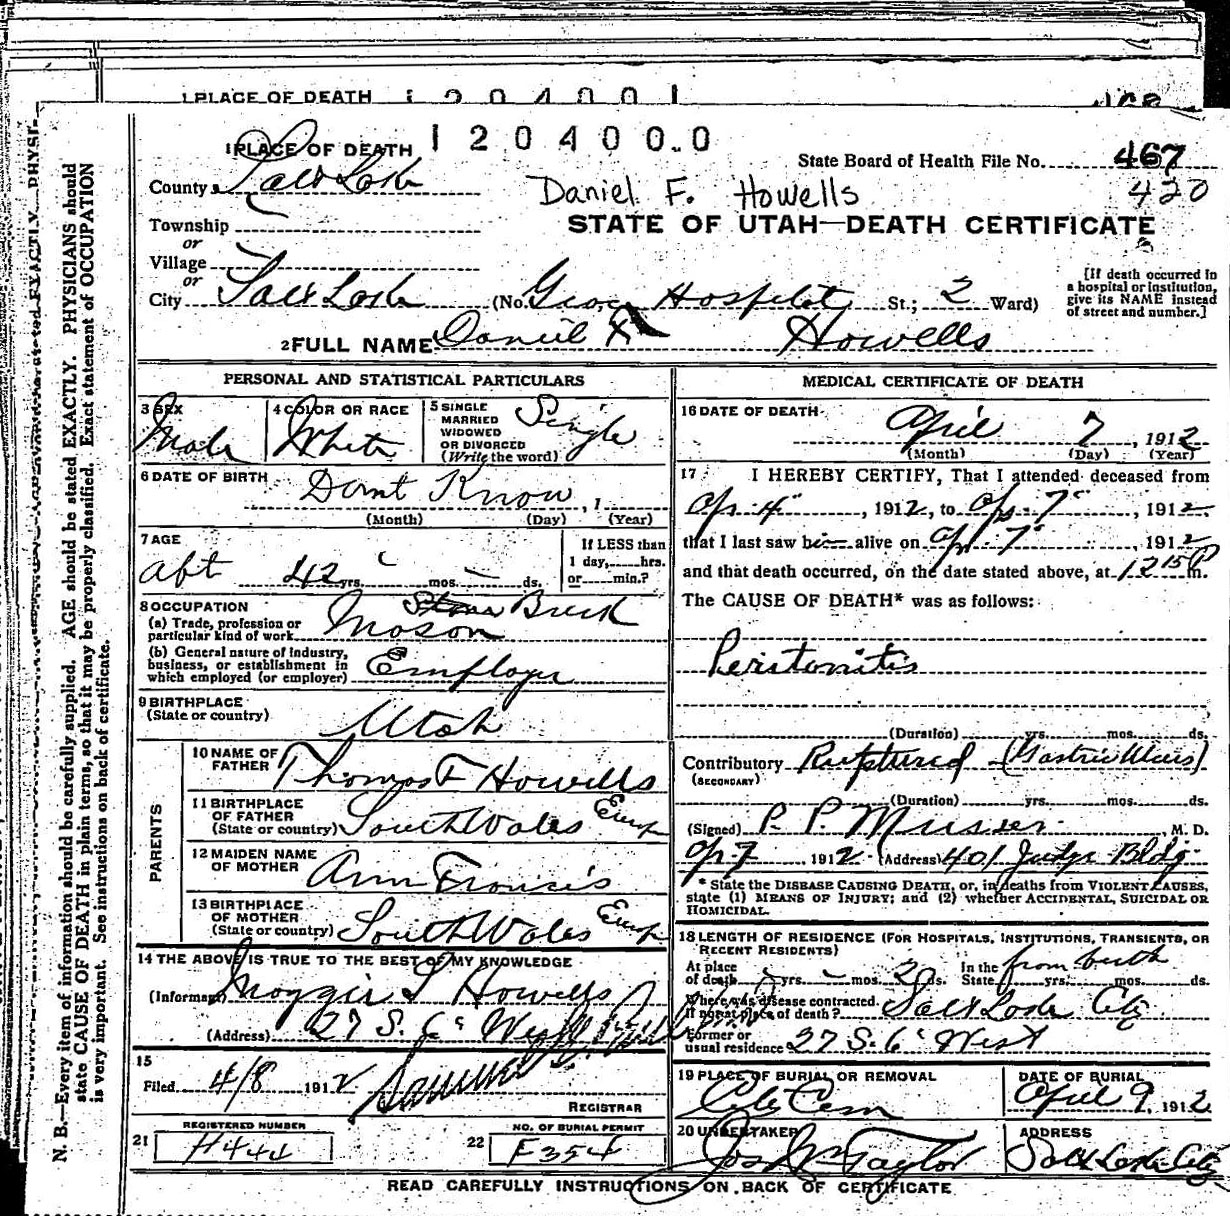 1 PLACE OF DEATH 1204001
1 PLACE OF DEATH 1204000.0
State Board of Health File No. 467
County Salt Lake
Daniel F. Howells
420
Township
STATE OF UTAH—DEATH CERTIFICATE
or
Village
or
City Salt Lake (No. Hospital St.; 2 Ward)
[If death occurred in
a hospital or institution,
give its NAME instead
of street and number.]
2 FULL NAME Daniel F Howells
PERSONAL AND STATISTICAL PARTICULARS
3 SEX
Male
4 COLOR OR RACE
White
5 SINGLE
MARRIED
WIDOWED
OR DIVORCED
(Write the word)
Single
6 DATE OF BIRTH Dont Know, 1
(Month) (Day) (Year)
7 AGE
abt 42 yrs. - mos. - ds.
If LESS than
1 day, hrs.
or min.?
8 OCCUPATION
(a) Trade, profession or
particular kind of work
Brick
Mason
(b) General nature of industry,
business, or establishment in
which employed (or employer) Employer
9 BIRTHPLACE
(State or country)
Utah
PARENTS
10 NAME OF
FATHER Thomas F Howells
11 BIRTHPLACE
OF FATHER
(State or country) South Wales Europ
12 MAIDEN NAME
OF MOTHER Ann Francis
13 BIRTHPLACE
OF MOTHER
(State or country) South Wales Europ
14 THE ABOVE IS TRUE TO THE BEST OF MY KNOWLEDGE
(Informant) Maggie L Howells
(Address) 27 S. 6" West
15
Filed 4/8 1912
REGISTRAR
REGISTERED NUMBER
21 H444
NO. OF BURIAL PERMIT
22 F354
MEDICAL CERTIFICATE OF DEATH
16 DATE OF DEATH
April 7, 1912
(Month) (Day) (Year)
17 I HEREBY CERTIFY, That I attended deceased from
Apr 4", 1912, to Apr. 7", 1912.
that I last saw him alive on Apr. 7", 1912
and that death occurred, on the date stated above, at 1215 P m.
The CAUSE OF DEATH* was as follows:
Peritonitis
(Duration) yrs. mos. ds.
Contributory Ruptured (Gastric Ulcer)
(SECONDARY)
(Duration) yrs. mos. ds.
(Signed) P. P. Musser, M. D.
Apr 7, 1912 (Address) 401 Judge Bldg
* State the DISEASE CAUSING DEATH, or, in deaths from VIOLENT CAUSES,
state (1) MEANS OF INJURY; and (2) whether ACCIDENTAL, SUICIDAL OR
HOMICIDAL.
18 LENGTH OF RESIDENCE (FOR HOSPITALS, INSTITUTIONS, TRANSIENTS, OR
RECENT RESIDENTS)
At place
of death yrs. - mos. ds.
In the
State from birth mos. ds.
Where was disease contracted.
If not at place of death? Salt Lake City
Former or
usual residence 27 S. 6" West
19 PLACE OF BURIAL OR REMOVAL
City Cem
DATE OF BURIAL
April 9, 1912
20 UNDERTAKER
Jos Wm Taylor
ADDRESS
Salt Lake City
READ CAREFULLY INSTRUCTIONS ON BACK OF CERTIFICATE
N. B.—Every item of information should be carefully supplied. AGE should be stated EXACTLY. PHYSICIANS should
state CAUSE OF DEATH in plain terms, so that it may be properly classified. Exact statement of OCCUPATION
is very important. See instructions on back of certificate.